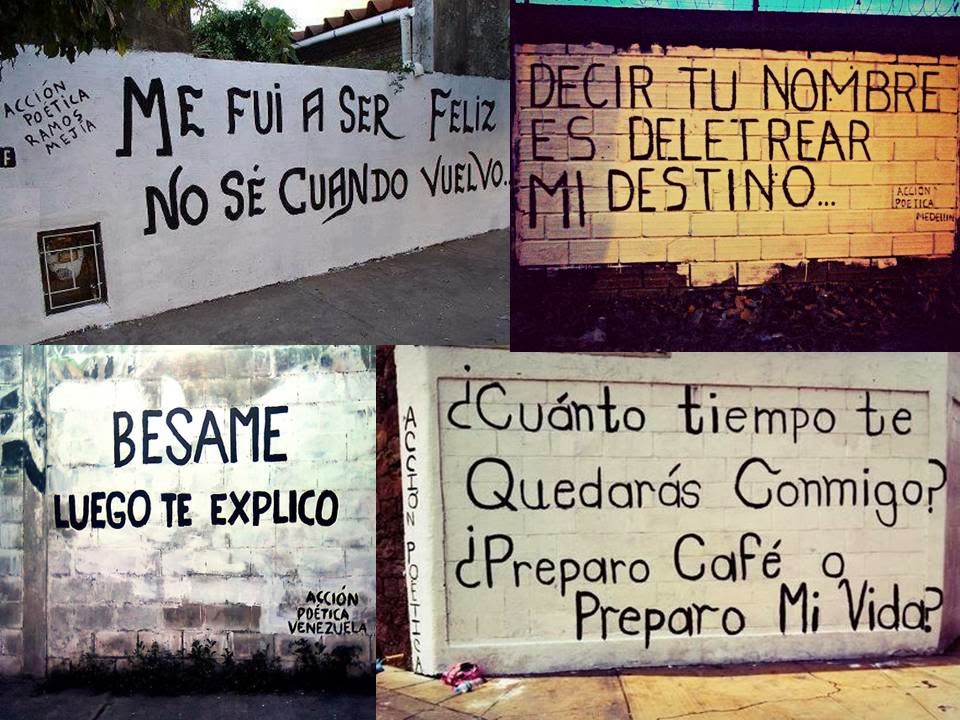 ACCIÓN
POÉTICA
RAMOS
MEJÍA
F
ME FUI A SER FELIZ
NO SÉ CUANDO VUELVO...
DECIR TU NOMBRE
ES DELETREAR
MI DESTINO...
ACCION
POETICA
MEDELLIN
BESAME
LUEGO TE EXPLICO
ACCIÓN
POÉTICA
VENEZUELA
ACCIÓN POETICA
¿Cuánto tiempo te
Quedarás Conmigo?
¿Preparo Café o
Preparo Mi Vida?